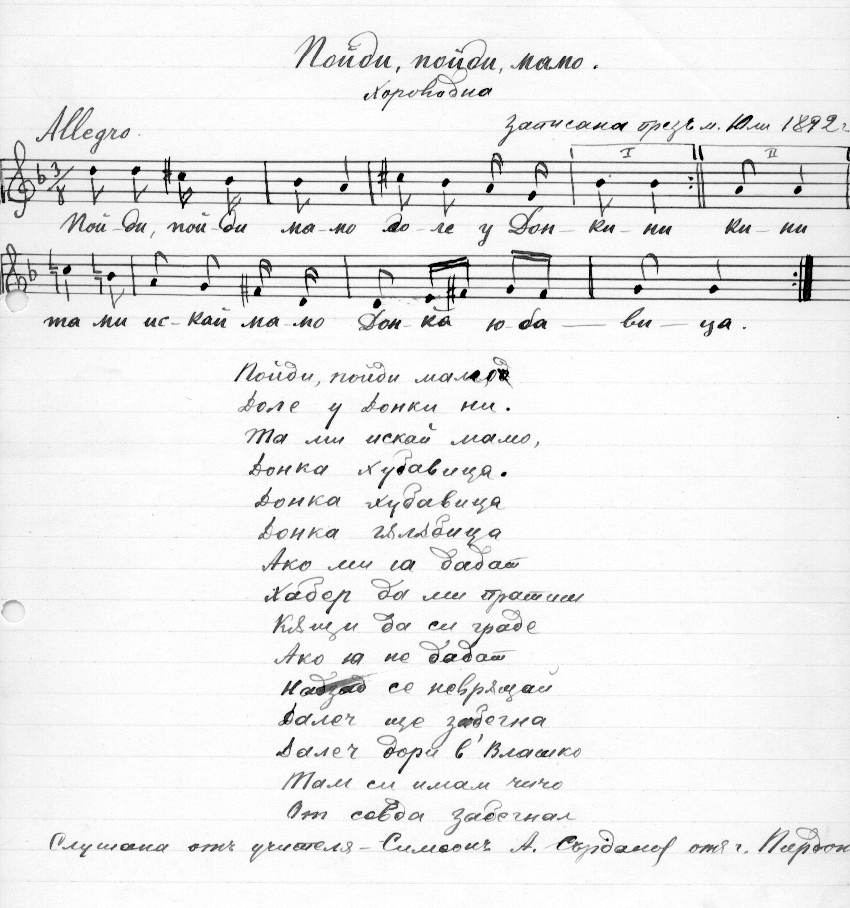 Пойди, пойди, мамо.
Хороводна
Allegro.
Записана презъ м. Юли 1892 г.
3/8
I
II
Пой-ди, пой-ди ма-мо до-ле у Дон-ки-ни ки-ни
та ми ис-кай ма-мо Дон-ка ю-ба-ви-ца.
Пойди, пойди мамо
Доле у Донки ни.
Та ми искай мамо,
Донка хубавица.
Донка хубавица
Донка гѫлѫбица
Ако ми ѭ дадат
Хабер да ми пратиш
Кѫщи да си граде
Ако ѭ не дадат
Надзад се неврѫщай
Далеч ще забегна
Далеч дори в' Влашко
Там си имам чичо
От севда забегнал
Слушана отъ учителя - Симеонъ А. отъ г. Пирдоп